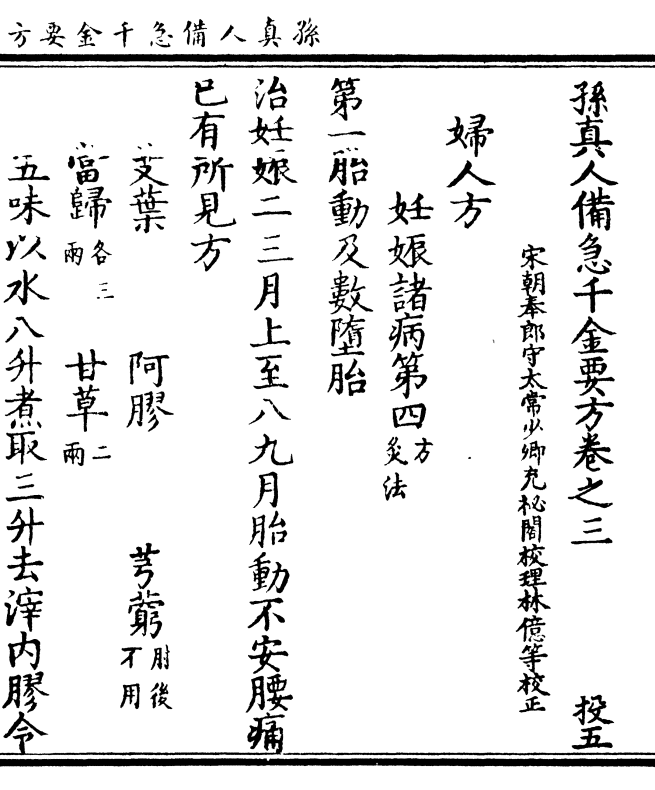 孫真人備急千金要方
孫真人備急千金要方卷之三　投五
宋朝奉郎守太常少卿充秘閣校理林億等校正
婦人方
妊娠諸病第四方灸法
第一胎動及數墮胎
治妊娠二三月上至八九月胎動不安腰痛
已有所見方
艾葉　阿膠　芎藭肘後不用
當歸各三兩　甘草二兩
五味以水八升煮取三升去滓内膠令